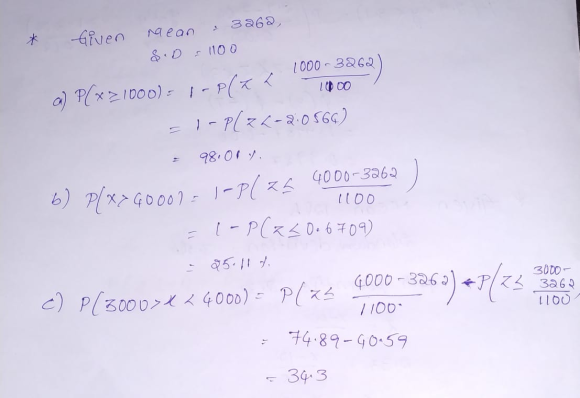 * Given Mean, 3262,
S.D = 1100
a) P(x ≥ 1000) = 1 - P(z < (1000-3262)/1100)
= 1 - P(z < -2.0564)
= 98.01 %.
b) P(x > 4000) = 1 - P(z ≤ (4000-3262)/1100)
= 1 - P(z ≤ 0.6709)
= 25.11 %.
c) P(3000 > x < 4000) = P(z ≤ (4000-3262)/1100) - P(z ≤ (3000-3262)/1100)
= 74.89 - 40.59
= 34.3